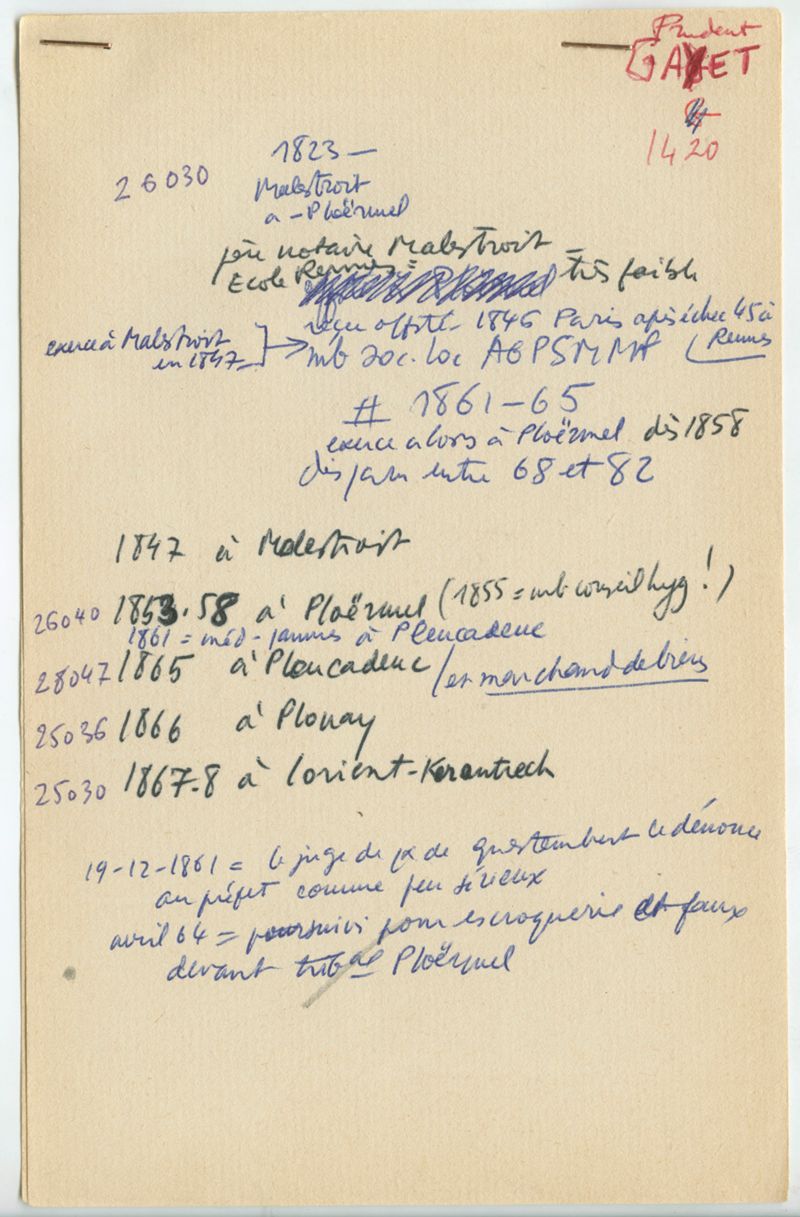 Prudent
GAYET
1420
1823 —
26030
Malestroit
a - Ploërmel
père notaire Malestroit —
Ecole Rennes = très faible
reçu offste 1846 Paris après échec 45 à Rennes
exerce à Malestroit
en 1847
mb soc. loc AGPSMMF
# 1861-65
exerce alors à Ploërmel dès 1858
disparu entre 68 et 82
1847 à Malestroit
26040 1853-58 à Ploërmel (1855 = mb conseil hyg !)
1861 = méd-jaunes à Pleucadeuc
28047 1865 à Pleucadeuc / et marchand de biens
25036 1866 à Plouay
25030 1867-8 à Lorient-Kerentrech
19-12-1861 = le juge de px de Questembert le dénonce
au préfet comme peu sérieux
avril 64 = poursuivi pour escroquerie et faux
devant tribal Ploërmel